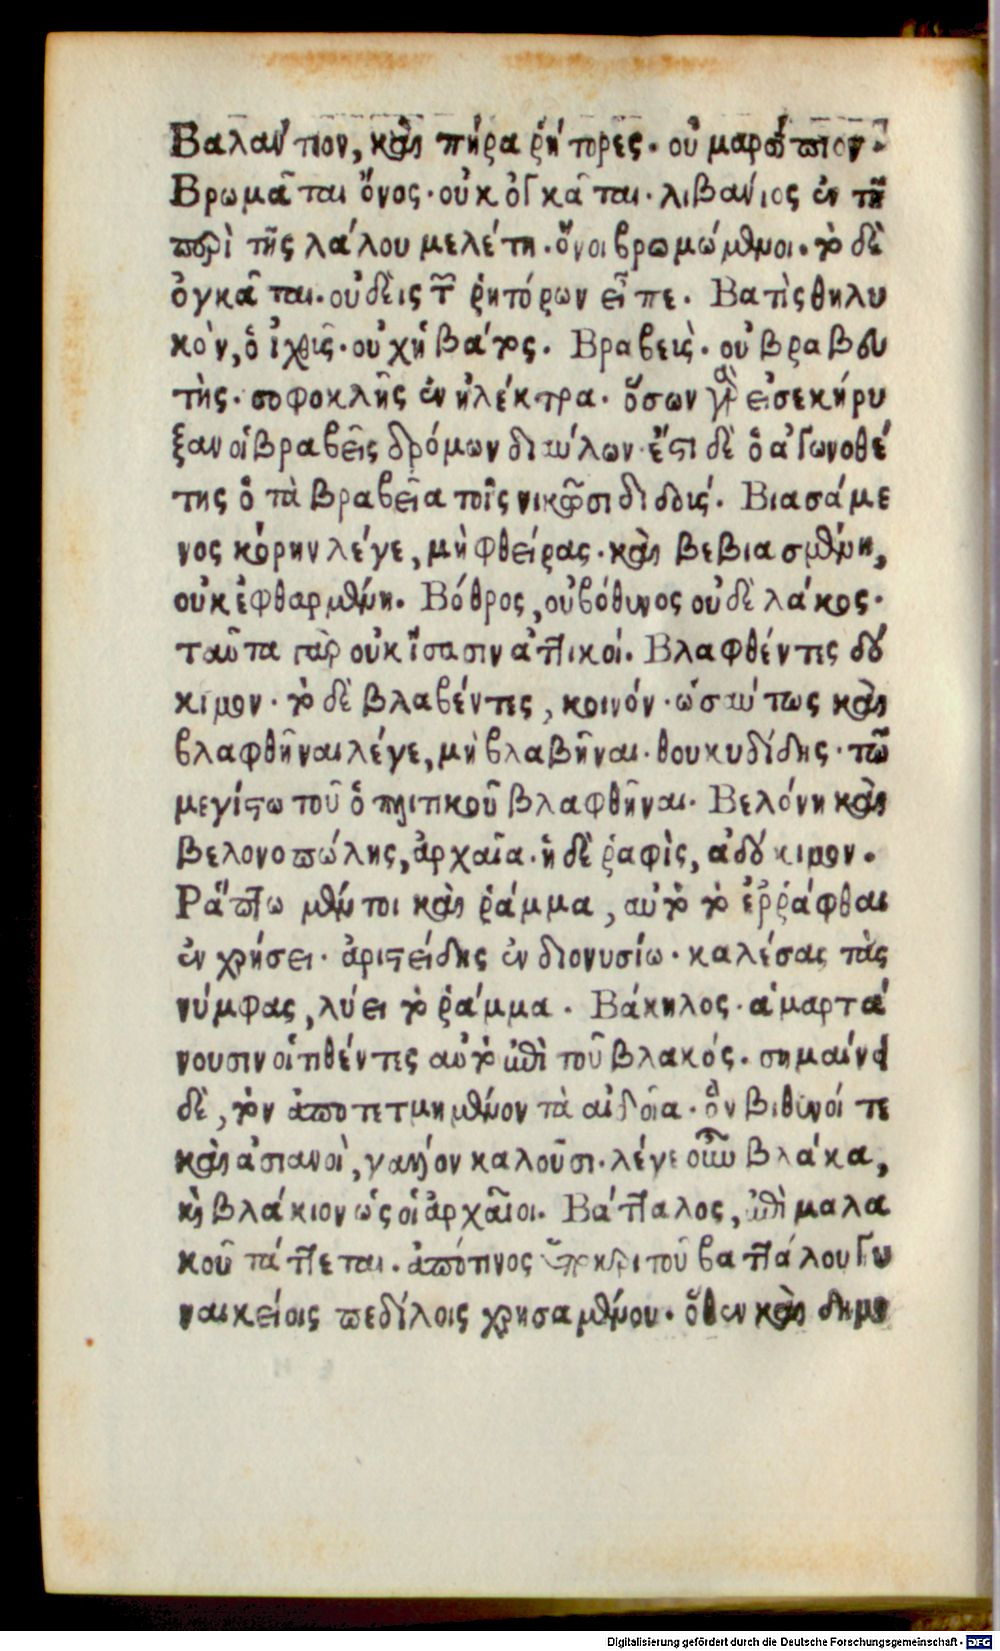 Βαλάντιον, καὶ πήρα ῥήτορες. οὐ μαρσύπιον.
Βρωμᾶται ὄνος. οὐκ ὀγκᾶται. λιβάνιος ἐν τῇ
περὶ τῆς λάλου μελέτη. ὄνοι βρωμώμενοι. τὸ δὲ
ὀγκᾶται. οὐδεὶς τῶν ῥητόρων εἶπε. Βατὶς θηλυ
κὸν, ὁ ἰχθῦς. οὐχὴ βάτος. Βραβεὶς. οὐ βραβευ
τὴς. σοφοκλῆς ἐν ἠλέκτρα. ὅσων γὰρ εἰσεκήρυ
ξαν οἱ βραβεῖς δρόμων διαύλων. ἔστι δὲ ὁ ἀγωνοθέ
της ὁ τὰ βραβεῖα τοῖς νικῶσι διδούς. Βιασάμε
νος κόρην λέγε, μὴ φθείρας. καὶ βεβιασμένη,
οὐκ ἐφθαρμένη. Βόθρος, οὐ βόθυνος οὐδὲ λάκος.
ταῦτα γὰρ οὐκ ἴσασιν ἀττικοί. Βλαφθέντες δό
κιμον. τὸ δὲ βλαβέντες, κοινόν. ὡσαύτως καὶ
βλαφθῆναι λέγε, μὴ βλαβῆναι. θουκυδίδης. τῶ
μεγίστω τοῦ ὁπλιτικοῦ βλαφθῆναι. Βελόνη καὶ
βελονοπώλης, ἀρχαῖα. ἡ δὲ ῥαφὶς, ἀδόκιμον.
Ράπτω μέντοι καὶ ῥάμμα, αὐτὸ τὸ ἐῤῥάφθαι
ἐν χρήσει. ἀριστείδης ἐν διονυσίω. καλέσας τὰς
νύμφας, λύει τὸ ῥάμμα. Βάκηλος. ἁμαρτά
νουσιν οἱ τιθέντες αὐτὸ ἐπὶ τοῦ βλακός. σημαίνει
δὲ, τὸν ἀποτετμημένον τὰ αἰδοῖα. ὃν βιθυνοί τε
καὶ ἀσιανοὶ, γαλλον καλοῦσι. λέγε οὖν βλάκα,
καὶ βλάκιον ὡς οἱ ἀρχαῖοι. Βάταλος, ἐπὶ μαλα
κοῦ τάττεται. ἀπό τινος ὑποκριτοῦ βαττάλου γυ
ναικείοις πεδίλοις χρησαμένου. ὅθεν καὶ δημο
Digitalisierung gefördert durch die Deutsche Forschungsgemeinschaft - DFG